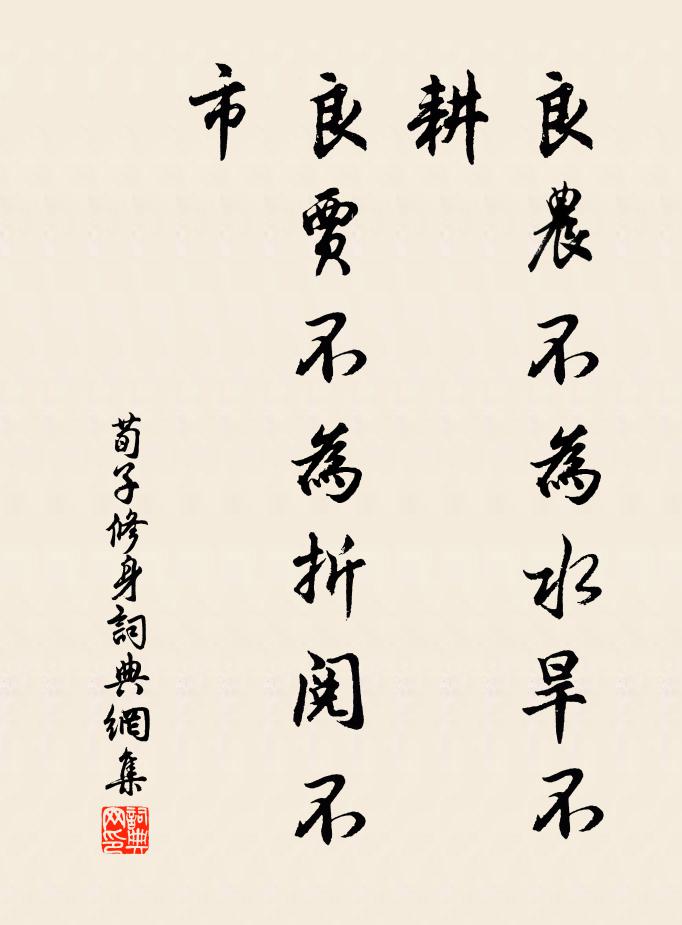 良農不為水旱不
耕
良賈不為折閱不
市
荀子修身詞典網集
詞典
网印